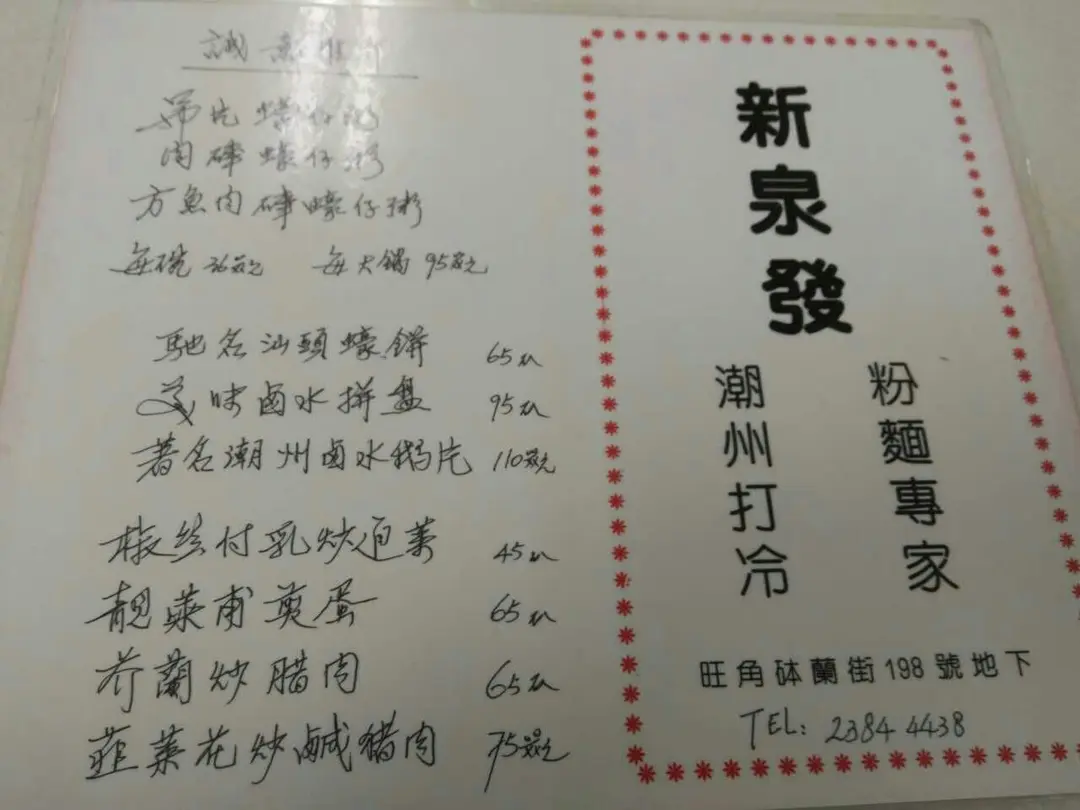 誠意推介
吊片蠔仔粥
肉碎蠔仔粥
方魚肉碎蠔仔粥
每碗36元 每大鍋95元
馳名汕頭蠔餅 65元
美味鹵水拼盤 95元
著名潮州鹵水鵝片 110元
椒絲付乳炒通菜 45元
靚菜甫煎蛋 65元
芥蘭炒腊肉 65元
韮菜花炒鹹豬肉 75元
新泉發
粉麵專家
潮州打冷
旺角砵蘭街198號地下
TEL: 2384 4438